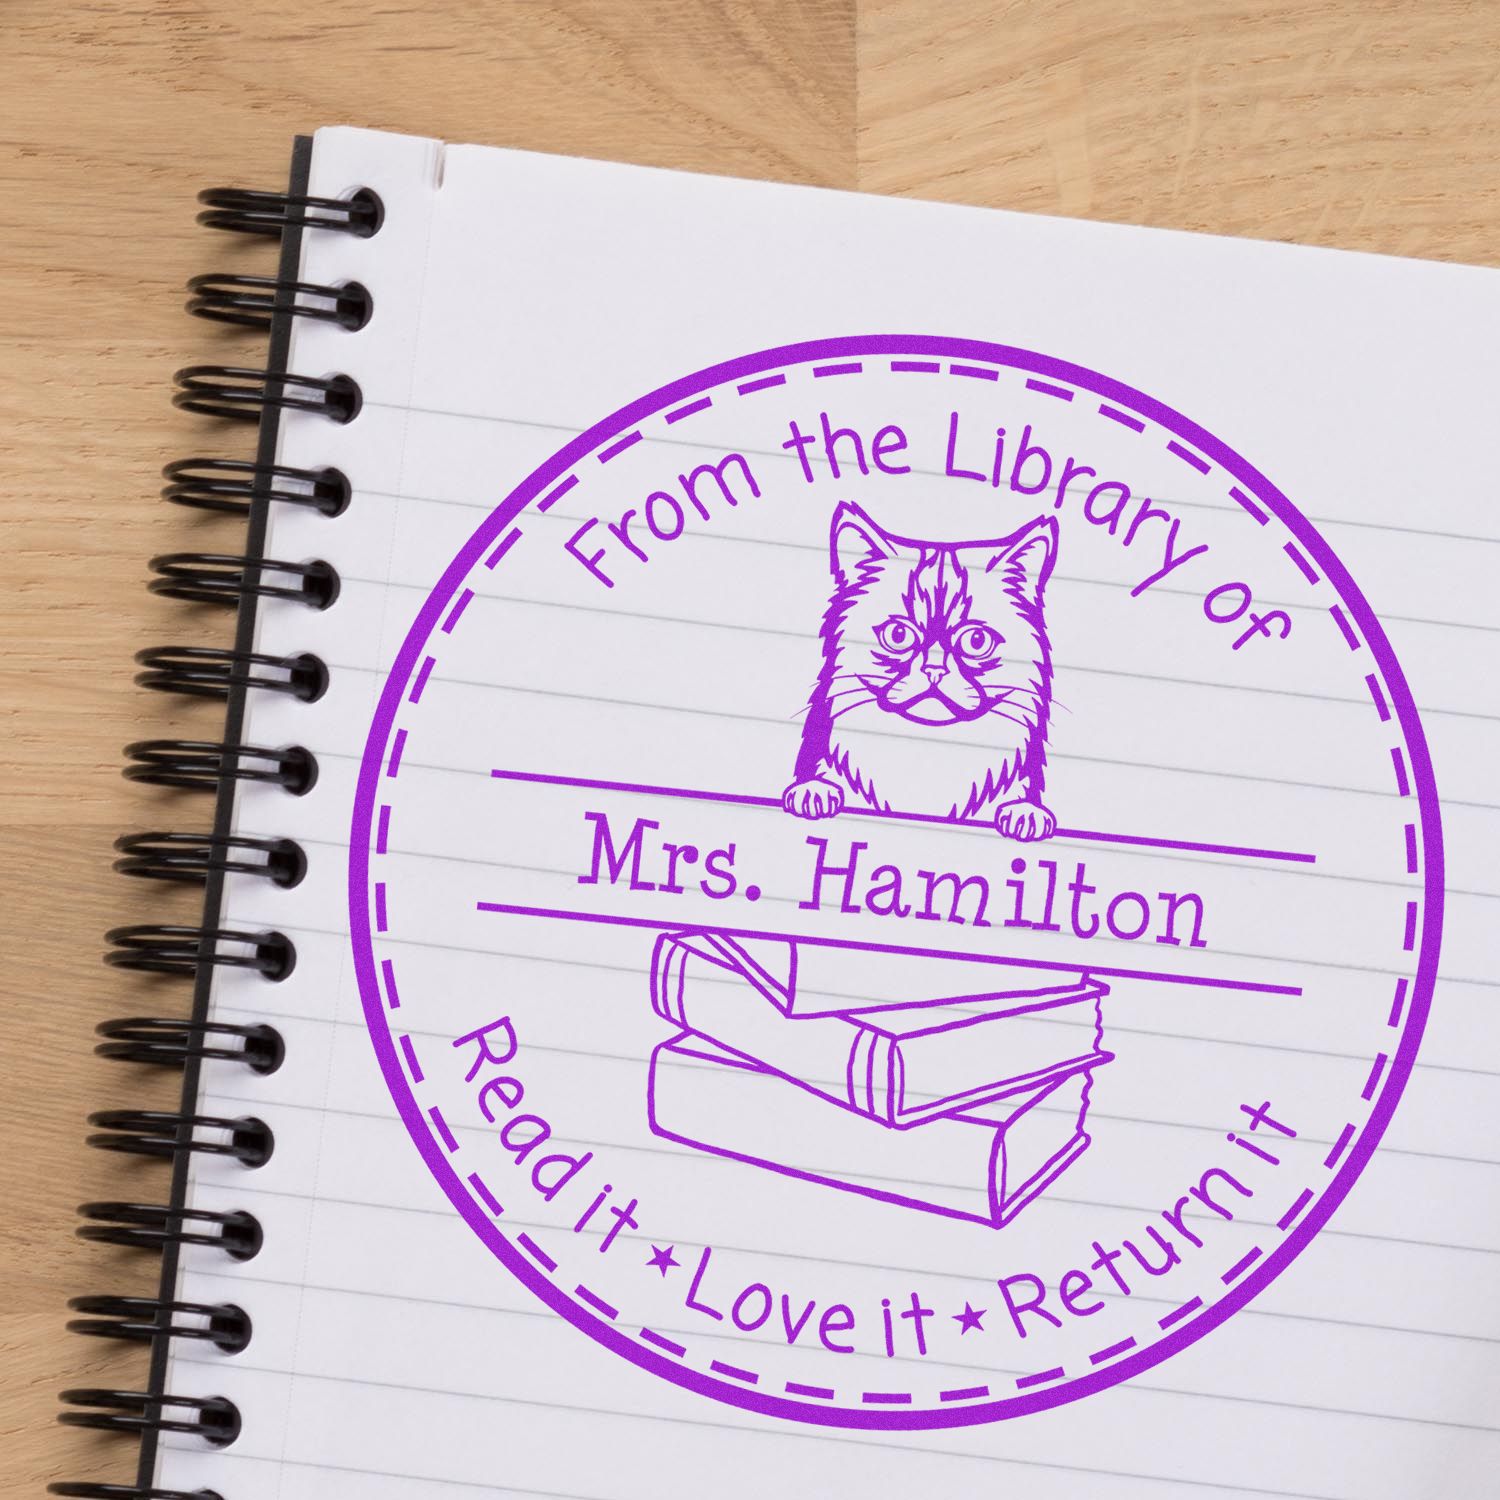 From the Library of
Mrs. Hamilton
Read it ★ Love it ★ Return it